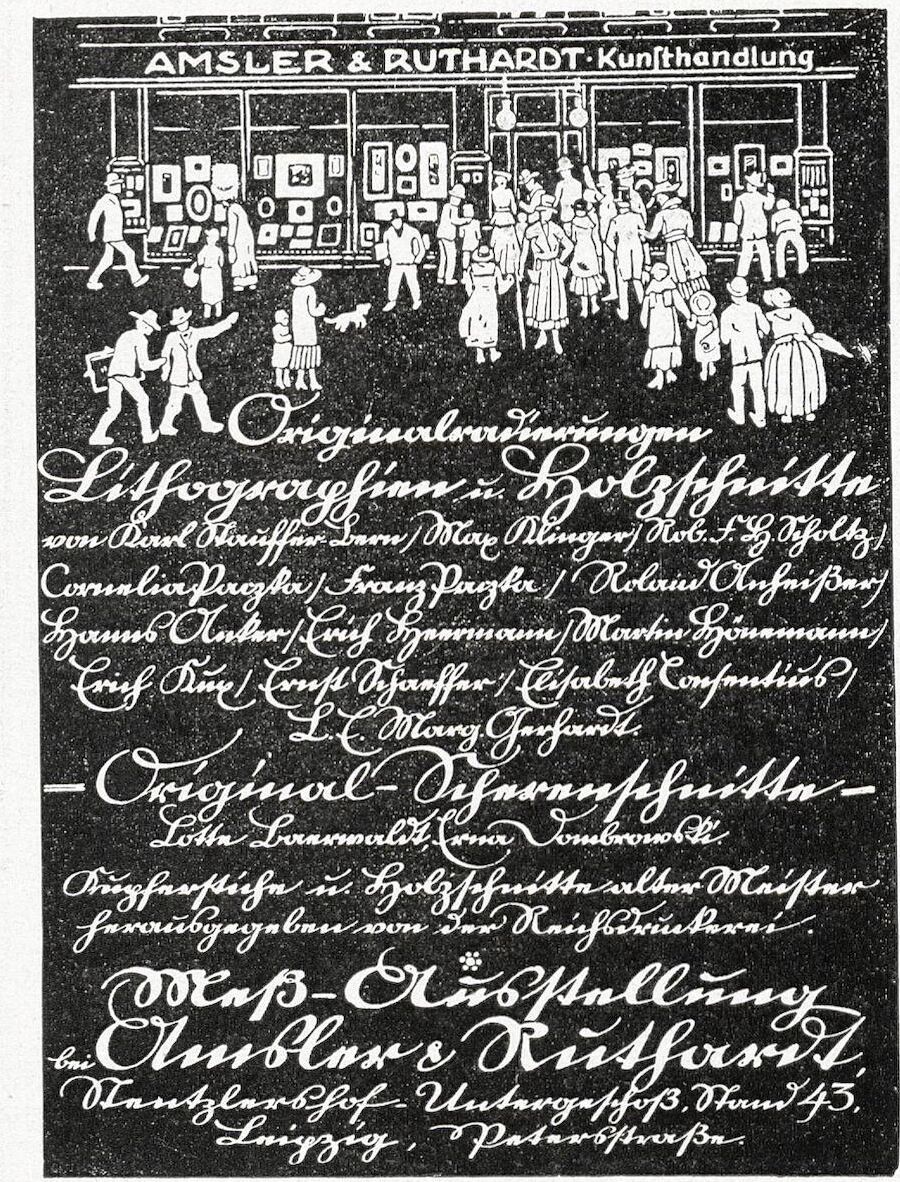 AMSLER & RUTHARDT·Kunſthandlung
Originalradierungen
Lithographien u. Holzschnitte
von Karl Stauffer-Bern / Max Klinger / Rob. F. H. Scholtz /
Cornelia Paczka / Franz Paczka / Roland Anheißer /
Hanns Anker / Erich Heermann / Martin Hönemann /
Erich Kux / Ernst Schaeffer / Elisabeth Consentius /
L. E. Marg Gerhardt.
— Original-Scherenschnitte —
Lotte Baerwaldt, Erna Dombrowski.
Kupferstiche u. Holzschnitte alter Meister
herausgegeben von der Reichsdruckerei.
Meß-Ausstellung
bei Amsler & Ruthardt,
Stentzlershof - Untergeschoß, Stand 43,
Leipzig, Petersstraße.